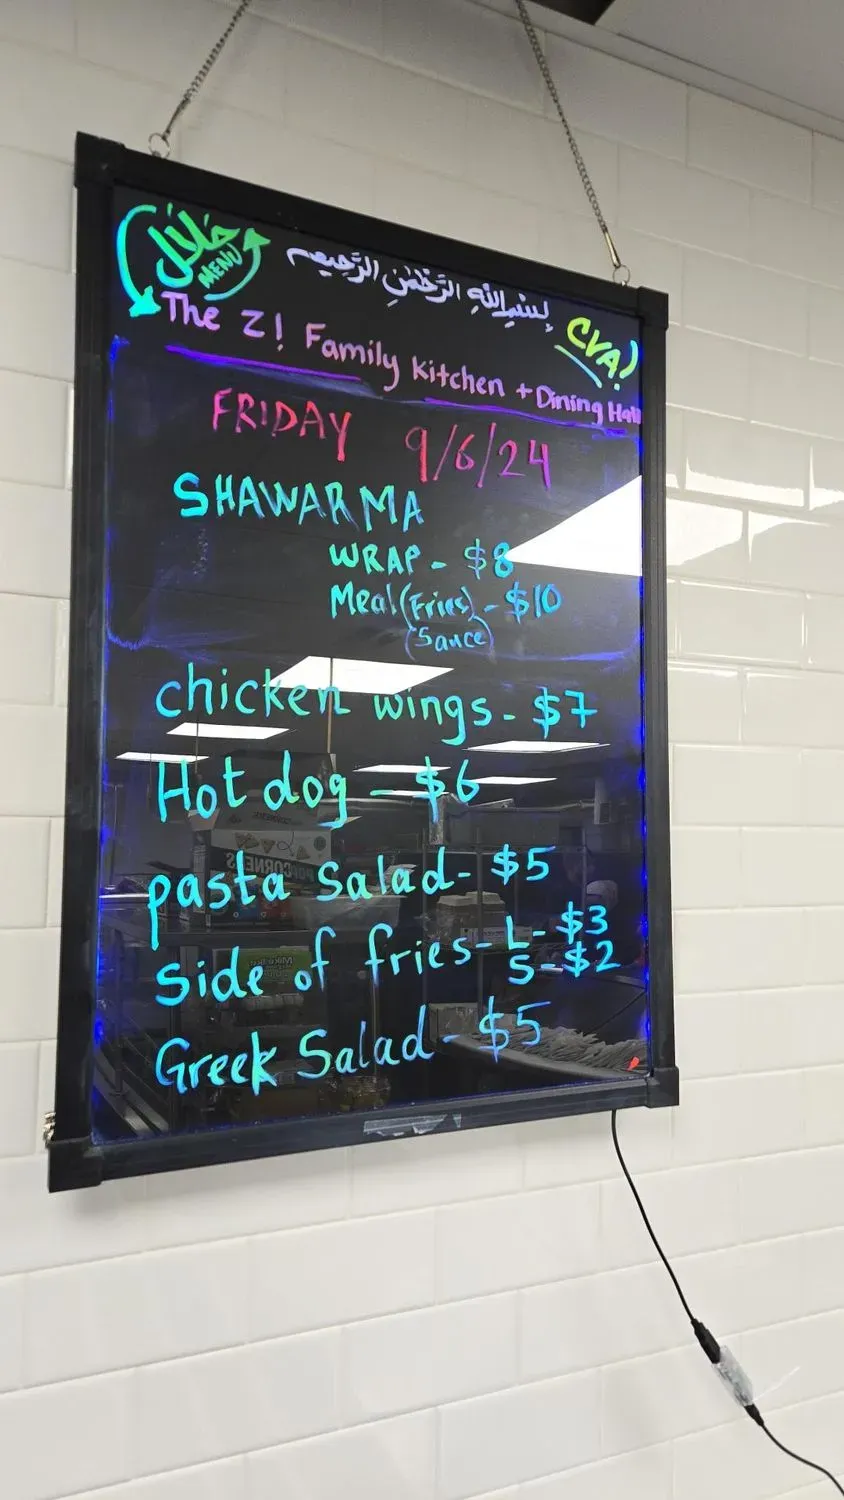 حَلَال
MENU
بِسْمِ اللهِ الرَّحْمٰنِ الرَّحِيمِ
CVA!
The Z! Family Kitchen + Dining Hall
FRIDAY 9/6/24
SHAWARMA
WRAP - $8
Meal (Fries) - $10
(Sauce)
chicken wings - $7
Hot dog - $6
pasta Salad - $5
Side of fries - L - $3
S - $2
Greek Salad - $5
POPCORNERS
Mike and Ike